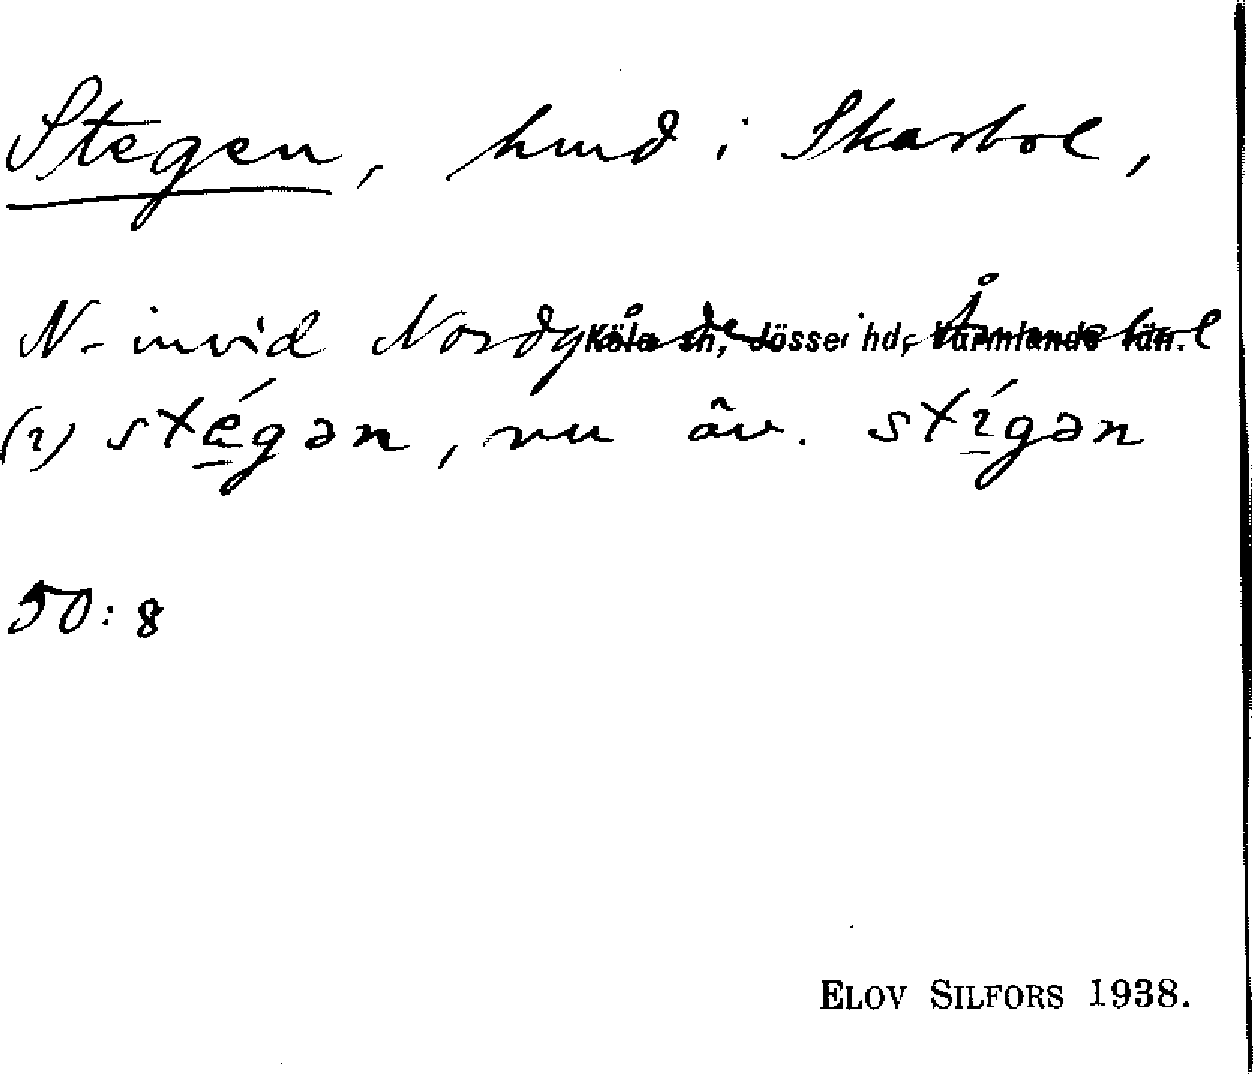 Stegen, hmd i Skarbol,
N. invid Nordgården Årbol
Köla sn, Jösse hd, Värmlands län.
(i) stégən, nu äv. stígən
50:8
ELOV SILFORS 1938.